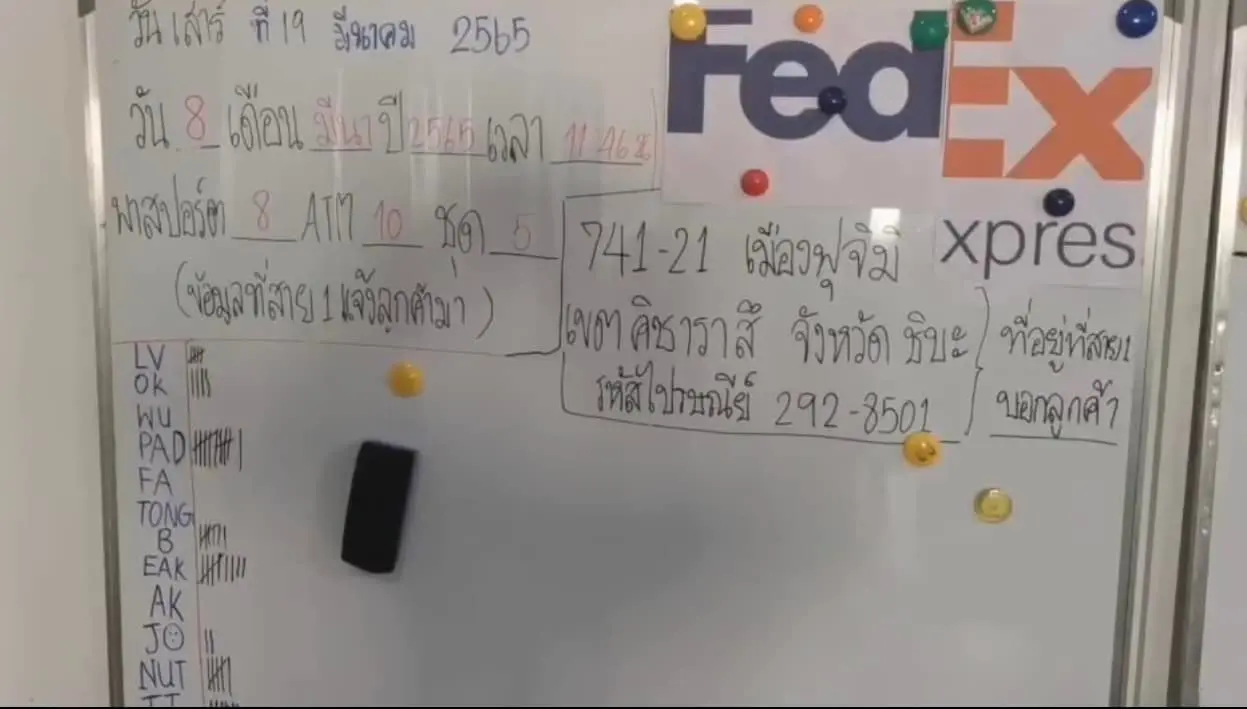 วันเสาร์ ที่ 19 มีนาคม 2565
วัน 8 เดือน มีนา ปี 2565 เวลา 11:46
พาสปอร์ต 8 ATM 10 ชุด 5
(ข้อมูลที่สาย 1 แจ้งลูกค้ามา)
FedEx
xpres
741-21 เมืองฟุจิมิ
เขตคิซาราสึ จังหวัด ชิบะ
รหัสไปรษณีย์ 292-8501
ที่อยู่ที่สาย 1
บอกลูกค้า
LV
OK
WU
PAD
FA
TONG
B
EAK
AK
JO
NUT